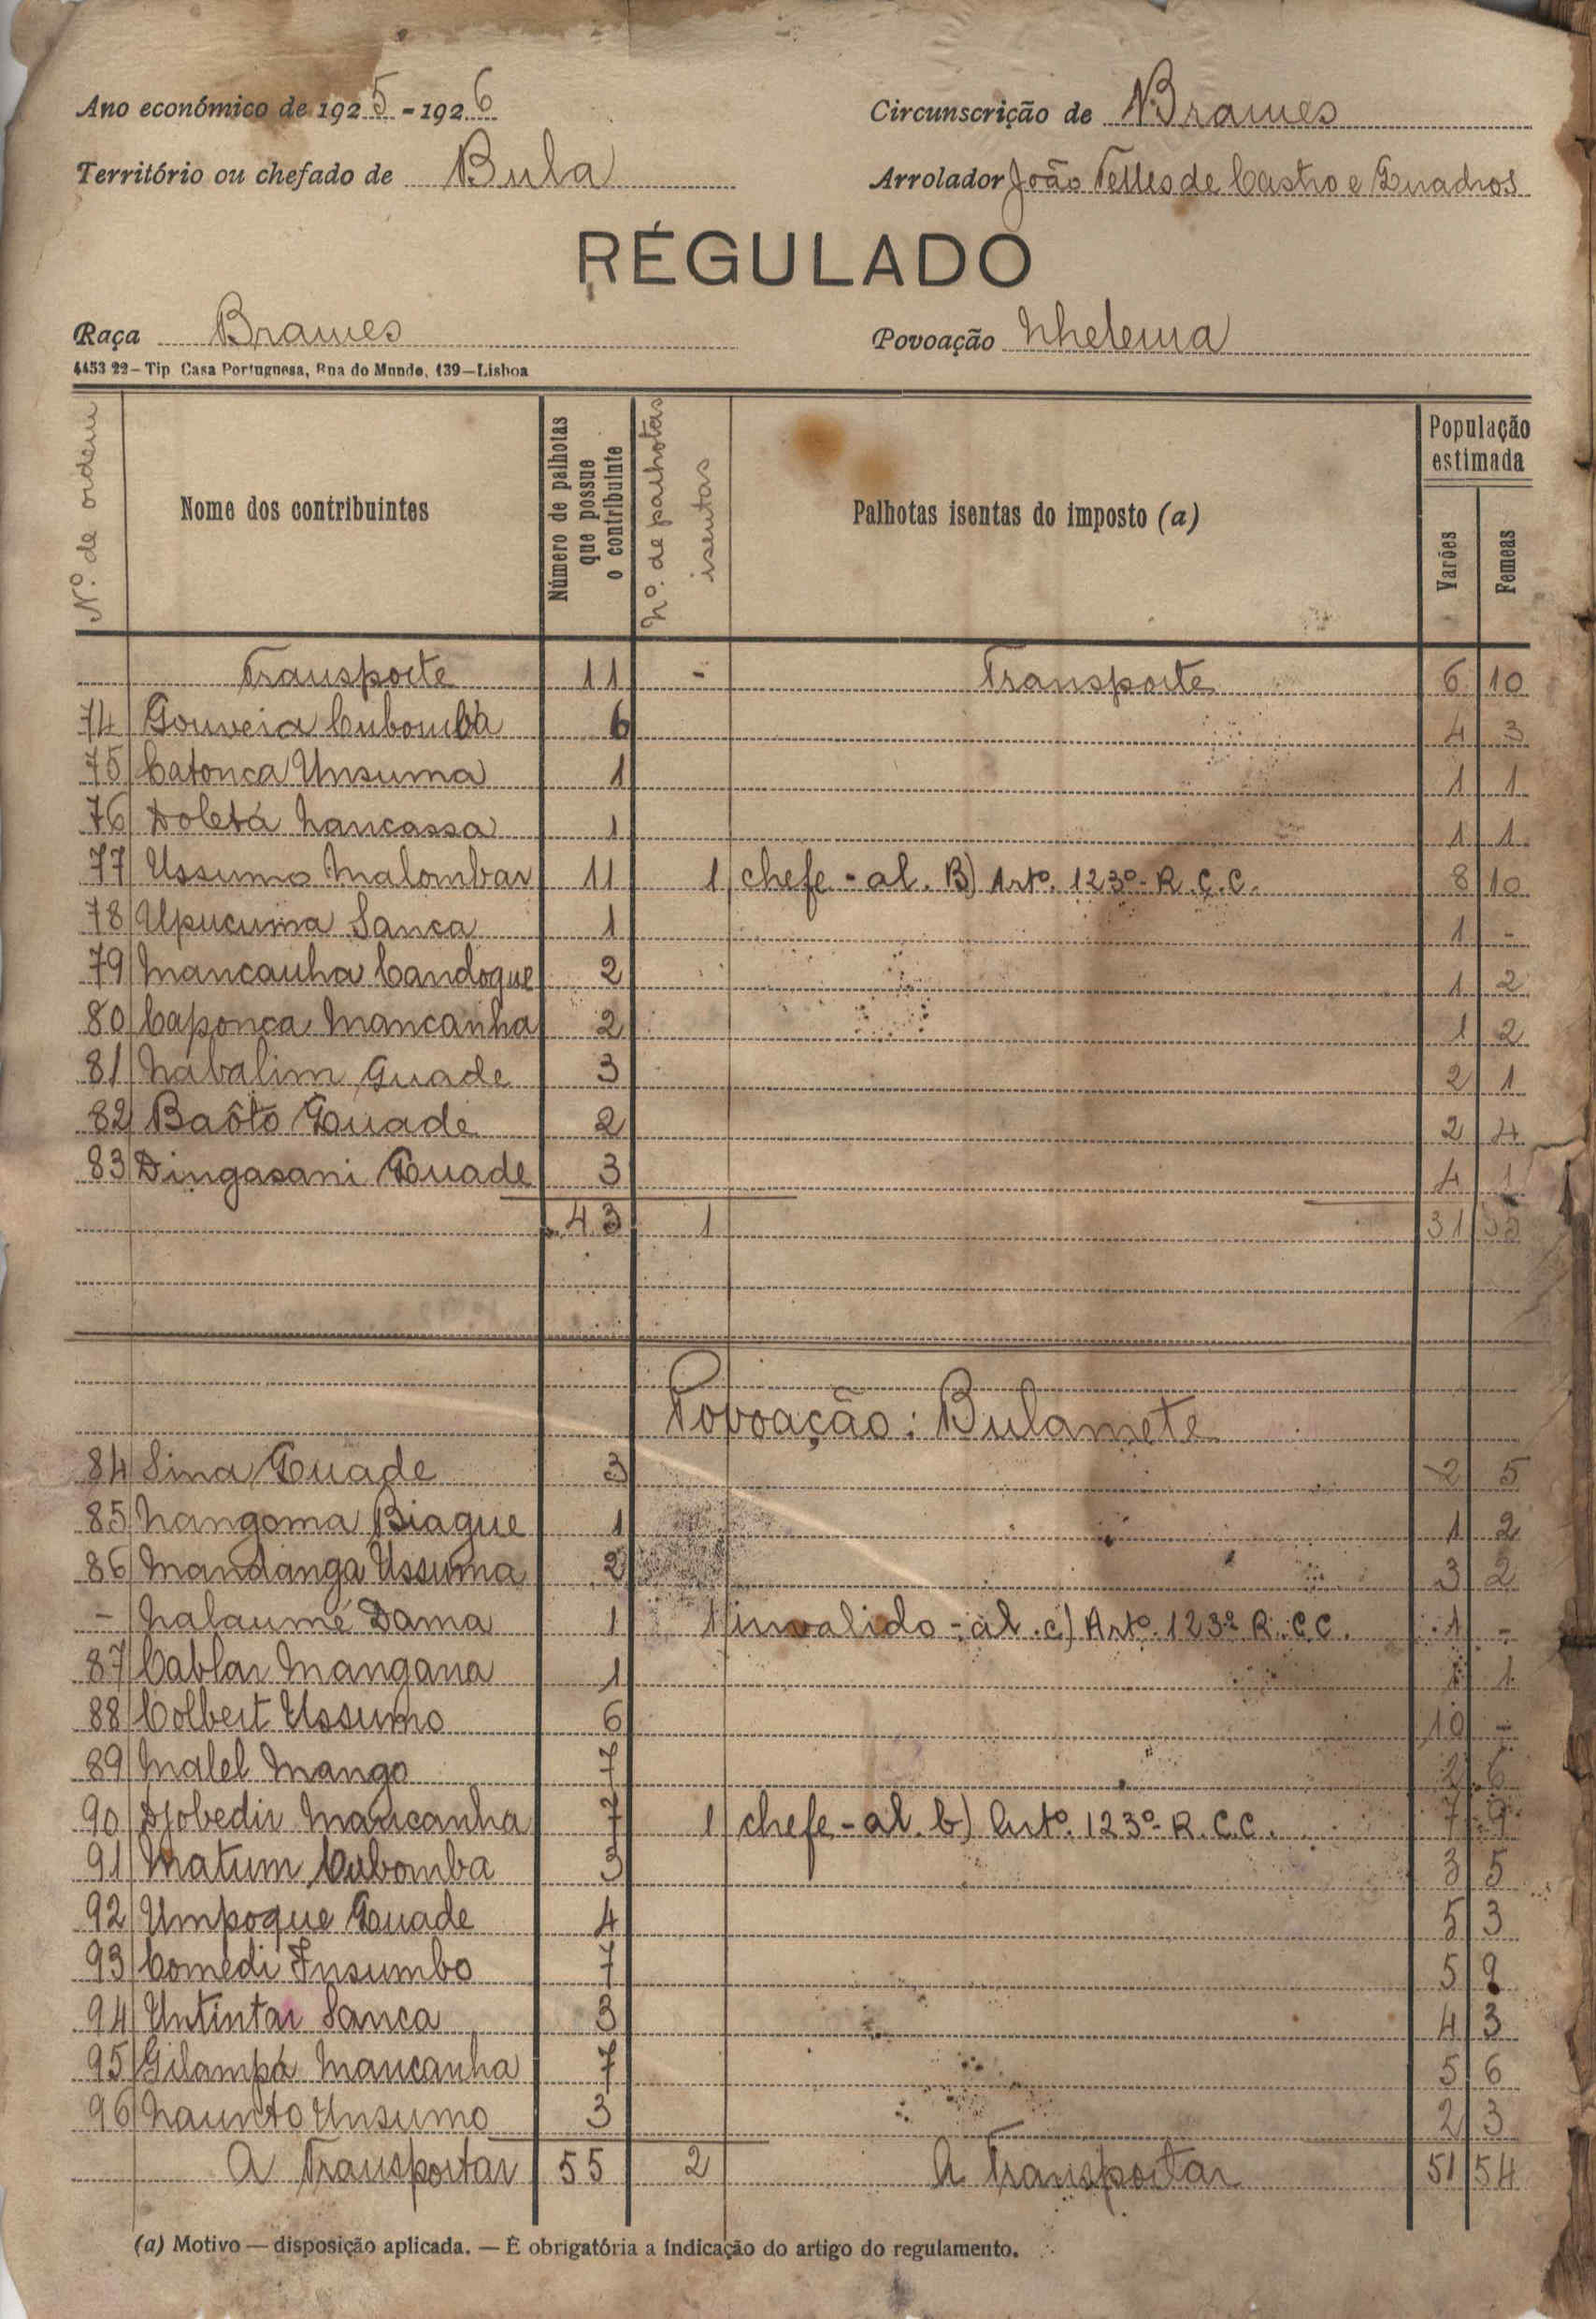 Ano económico de 1925-1926
Circunscrição de Brames
Território ou chefado de Bula
Arrolador João Telles de Castro e Quadros
RÉGULADO
Raça Brames
Povoação Nhelema
4453 22—Tip Casa Portuguesa, Rua do Mundo, 139—Lisboa
Nº. de ordem
Nome dos contribuintes
Número de palhotas que possue o contribuinte
Nº. de palhotas isentas
Palhotas isentas do imposto (a)
População estimada
Varões
Femeas
Transporte 11 - Transporte 6 10
74 Gouveia Cubomba 6 4 3
75 Catonca Unsuma 1 1 1
76 Doletá Nancassa 1 1 1
77 Ussumo Malombar 11 1 chefe - al. B) Artº. 123º- R.C.C. 8 10
78 Upucuma Sanca 1 1 -
79 Mancanha Candoque 2 1 2
80 Caponca Mancanha 2 1 2
81 Nabalim Quade 3 2 1
82 Baôto Quade 2 2 4
83 Dingasani Quade 3 4 1
43 1 31 35
Povoação: Bulamete
84 Sina Quade 3 2 5
85 Nangoma Biague 1 1 2
86 Mandanga Ussuma 2 3 2
- Nalaumé Dama 1 1 invalido - al. c) Artº. 123º R.C.C. 1 -
87 Cablar Mangana 1 1 1
88 Colbert Ussumo 6 10 -
89 Malel Mango 7 2 6
90 Djobedir Mancanha 7 1 chefe - al. b) Artº. 123º- R.C.C. 7 9
91 Matum Cubomba 3 3 5
92 Umpoque Quade 4 5 3
93 Comedi Insumbo 7 5 9
94 Untintar Sanca 3 4 3
95 Gilampá Mancanha 7 5 6
96 Naunto Unsumo 3 2 3
A Transportar 55 2 A Transportar 51 54
(a) Motivo — disposição aplicada. — É obrigatória a indicação do artigo do regulamento.